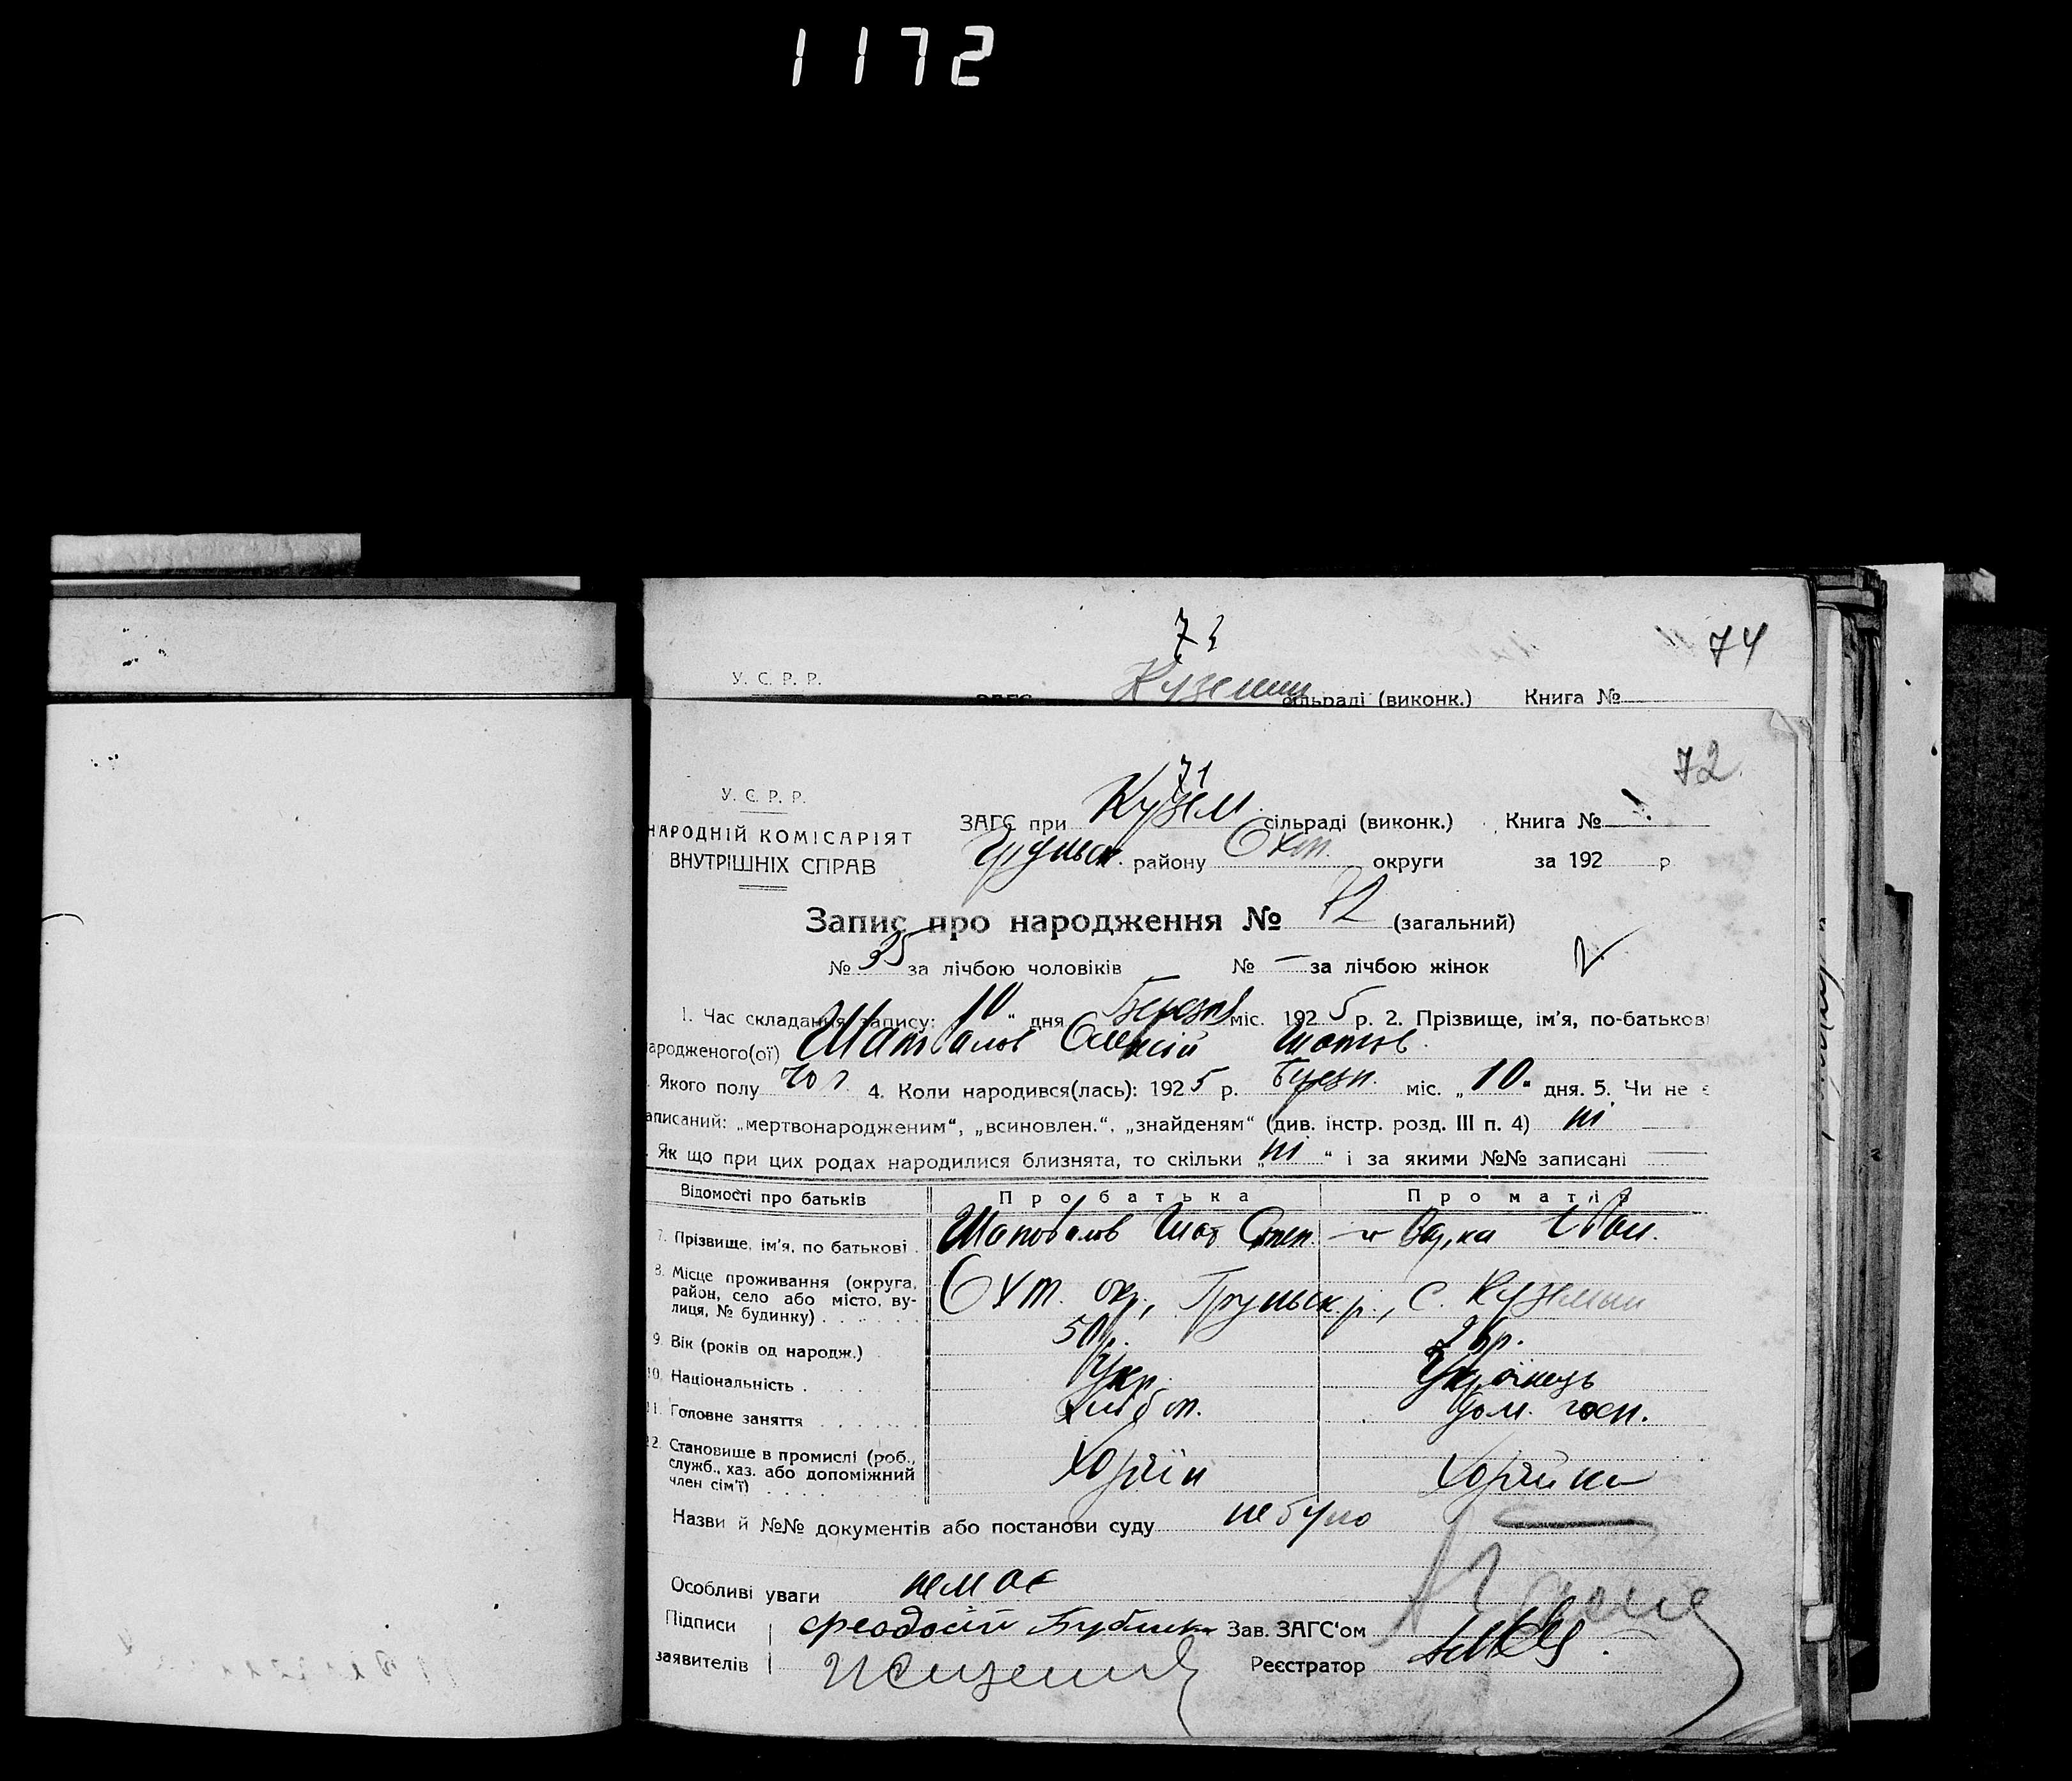 1172
74
У. С. Р. Р.
сільраді (виконк.) Книга №
72
71
У. С. Р. Р.
НАРОДНІЙ КОМІСАРІЯТ
ВНУТРІШНІХ СПРАВ
ЗАГС при Кузем. сільраді (виконк.) Книга №
Грунськ. району Охт. округи за 192 р
Запис про народження № 72 (загальний)
№ 35 за лічбою чоловіків № — за лічбою жінок
1. Час складання запису: 10 " дня Березня міс. 1925 р. 2. Прізвище, ім'я, по-батькові
народженого(ої) Шаповалов Олексій
Якого полу чол. 4. Коли народився(лась): 1925 р. Березн. міс. „10" дня. 5. Чи не є
записаний: „мертвонародженим", „всиновлен.", „знайденям" (див. інстр. розд. III п. 4) ні
Як що при цих родах народилися близнята, то скільки „ні" і за якими №№ записані
Відомості про батьків Про батька Про матір
7. Прізвище, ім'я, по батькові . Шаповалов Степ. Іван.
8. Місце проживання (округа, район, село або місто, вулиця, № будинку) Охт. окр., Грунськ. р., с.
9. Вік (років од народж.) 50 р. 26 р.
10. Національність . Укр. Українець
11. Головне заняття Хлібоп. Дом. госп.
12. Становище в промислі (роб., служб., хаз. або допоміжний член сім'ї)
Назви й №№ документів або постанови суду не було
Особливі уваги немає
Підписи Феодосій Зав. ЗАГС'ом
заявителів Реєстратор